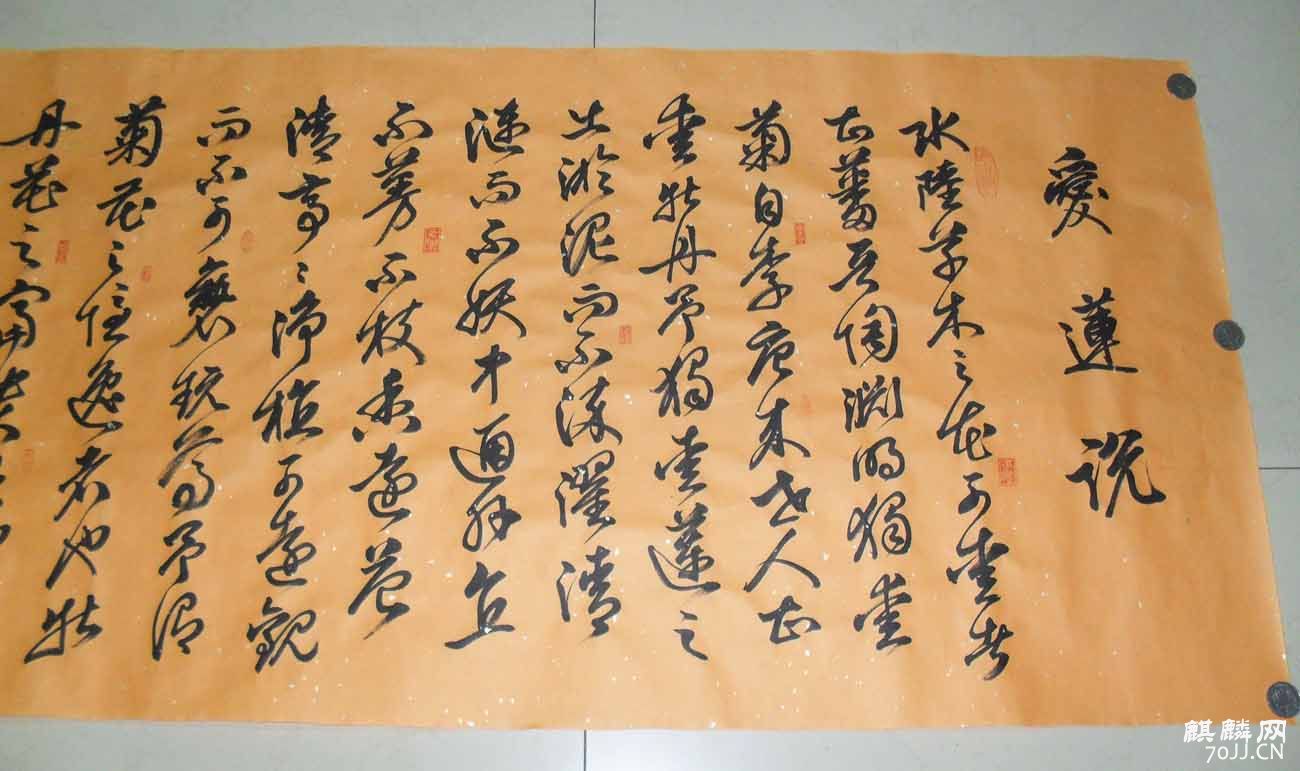 愛蓮说
水陸草木之花可愛者
甚蕃晋陶渊明獨愛
菊自李唐来世人甚
愛牡丹予獨愛蓮之
出淤泥而不染濯清
漣而不妖中通外直
不蔓不枝香遠益
清亭〻净植可遠觀
而不可褻玩焉予谓
菊花之隱逸者也牡
丹花之富貴
麒麟网
70JJ.CN